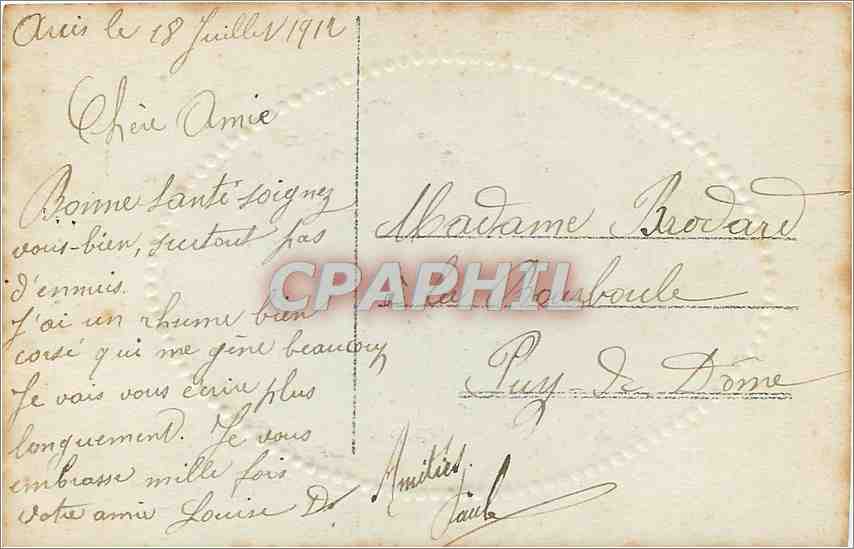 Arcis le 18 Juillet 1912
Chère Amie
Bonne Santé soignez
vous-bien, surtout pas
d'ennuis.
J'ai un rhume bien
corsé qui me gêne beaucoup
Je vais vous écrire plus
longuement. Je vous
embrasse mille fois
votre amie Louise D.
Amitiés.
Paul
Madame Brodard
à la Bourboule
Puy-de Dôme
CPAPHIL